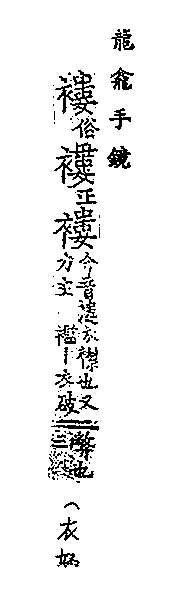 龍龕手鏡
褸俗褸正褸今音 衣襟也又
力主 襤丨衣破
弊也
(衣